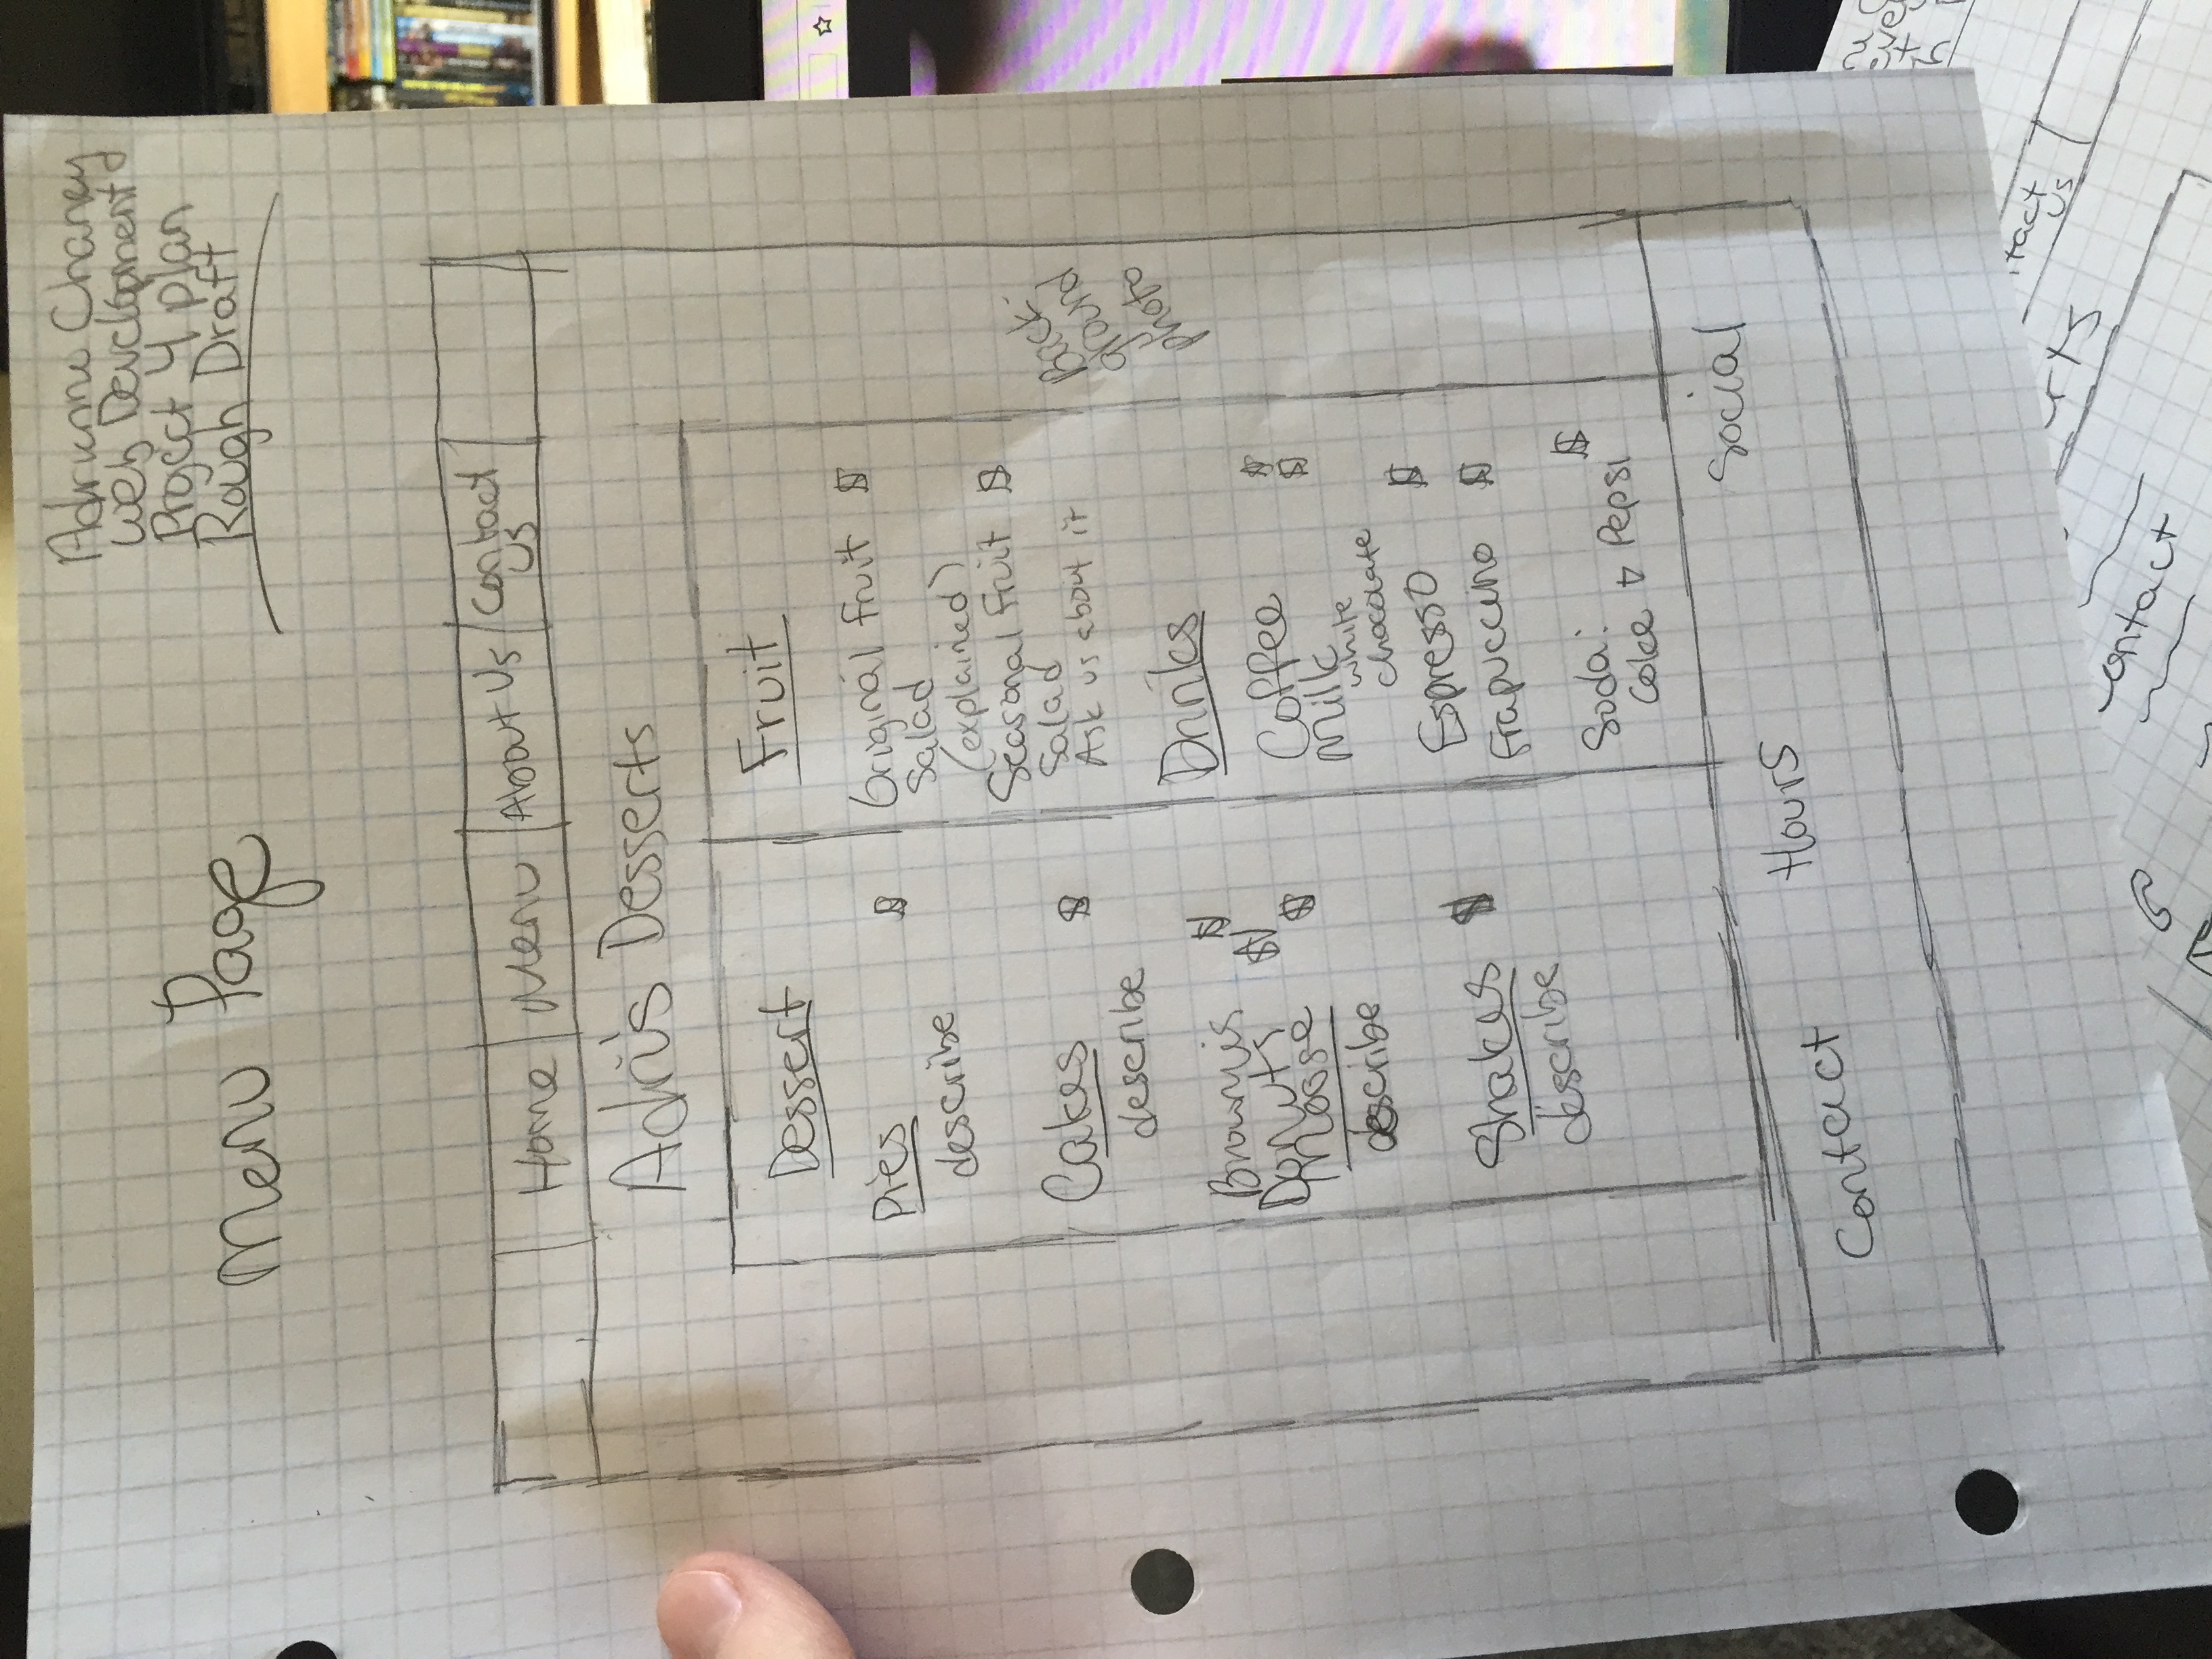 Adrienne Chaney
Web Development
Project 4 plan
Rough Draft
Menu Page
Home Menu About Us Contact Us
Adri's Desserts
Dessert
Pies $
describe
Cakes $
describe
Brownis $
Donuts $
Moose $
describe
Shakes $
describe
Fruit
Original Fruit $
Salad
(explained)
Seasonal Fruit $
Salad
Ask us about it
Drinks
Coffee $
Milk $
white
chocolate
Espresso $
Frapuccino $
Soda: $
Coke + Pepsi
Back-
ground
photo
Contact Hours Social
ntact
us
contact